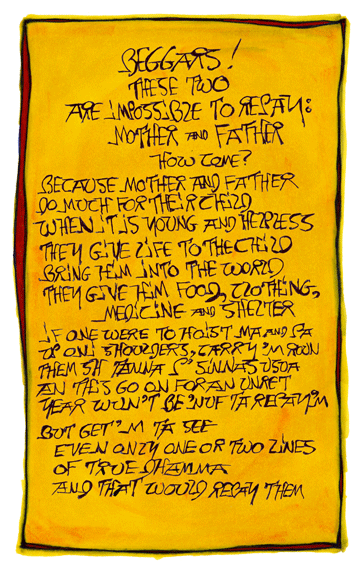 BEGGARS!
THESE TWO
ARE IMPOSSIBLE TO REPAY:
MOTHER AND FATHER
HOW COME?
BECAUSE MOTHER AND FATHER
DO MUCH FOR THEIR CHILD
WHEN IT IS YOUNG AND HELPLESS
THEY GIVE LIFE TO THE CHILD
BRING HIM INTO THE WORLD
THEY GIVE HIM FOOD, CLOTHING,
MEDICINE AND SHELTER
IF ONE WERE TO HOIST MA AND PA
UP ON SHOULDERS, CARRY 'M ROUN
THEM
AN THIS GO ON FOR AN
YEAR WON'T BE 'NUF TA REPAY 'M
BUT GET 'M TA SEE
EVEN ONLY ONE OR TWO LINES
OF TRUE DHAMMA
AND THAT WOULD REPAY THEM